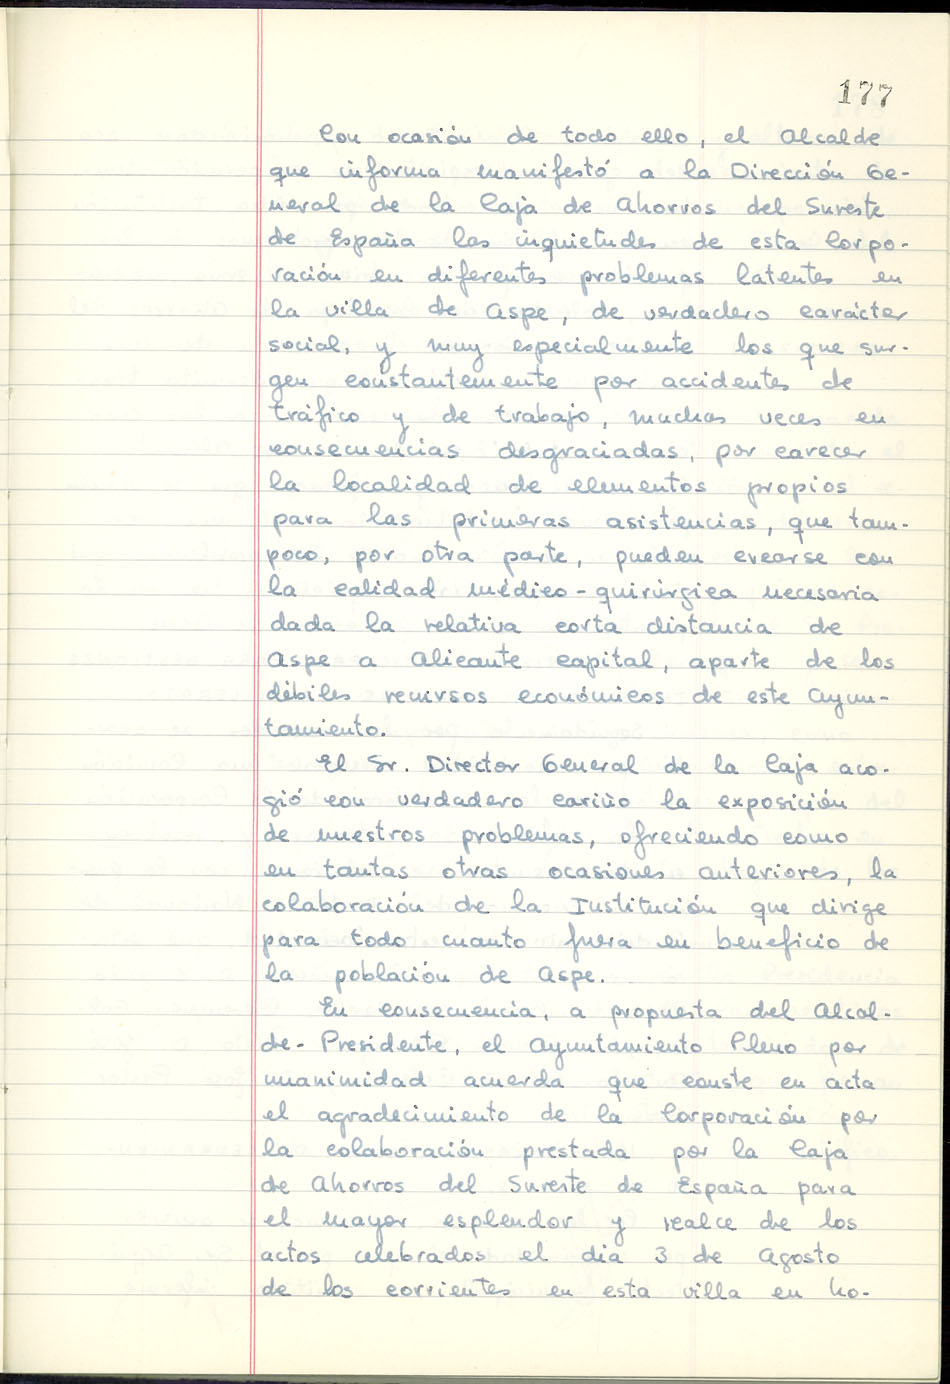 177
Con ocasión de todo ello, el Alcalde
que informa manifestó a la Dirección Ge-
neral de la Caja de Ahorros del Sureste
de España las inquietudes de esta Corpo-
ración en diferentes problemas latentes en
la villa de Aspe, de verdadero carácter
social, y muy especialmente los que sur-
gen constantemente por accidentes de
tráfico y de trabajo, muchas veces en
consecuencias desgraciadas, por carecer
la localidad de elementos propios
para las primeras asistencias, que tam-
poco, por otra parte, pueden crearse con
la calidad médico-quirúrgica necesaria
dada la relativa corta distancia de
Aspe a Alicante capital, aparte de los
débiles recursos económicos de este Ayun-
tamiento.
El Sr. Director General de la Caja aco-
gió con verdadero cariño la exposición
de nuestros problemas, ofreciendo como
en tantas otras ocasiones anteriores, la
colaboración de la Institución que dirige
para todo cuanto fuera en beneficio de
la población de Aspe.
En consecuencia, a propuesta del Alcal-
de-Presidente, el Ayuntamiento Pleno por
unanimidad acuerda que conste en acta
el agradecimiento de la Corporación por
la colaboración prestada por la Caja
de Ahorros del Sureste de España para
el mayor esplendor y realce de los
actos celebrados el día 3 de Agosto
de los corrientes en esta villa en ho-